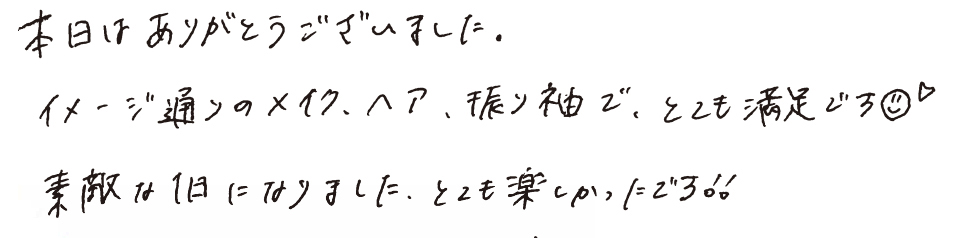 本日はありがとうございました.
イメージ通りのメイク、ヘア、振り袖で、とても満足です☺♡
素敵な1日になりました. とても楽しかったです!!